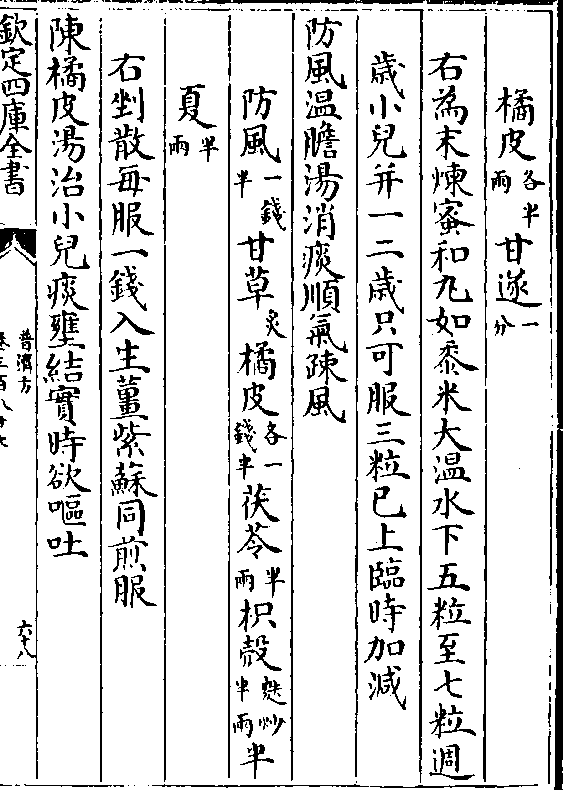 橘皮各半兩甘遂一分
右為末煉蜜和丸如黍米大温水下五粒至七粒週
歲小兒并一二歲只可服三粒已上臨時加減
防風温膽湯消痰順氣疎風
防風一錢半甘草炙橘皮各一錢半茯苓半兩枳殼麩炒半兩半
夏半兩
右剉散每服一錢入生薑紫蘇同煎服
陳橘皮湯治小兒痰壅結實時欲嘔吐
欽定四庫全書
普濟方
卷三百八十七
六十八